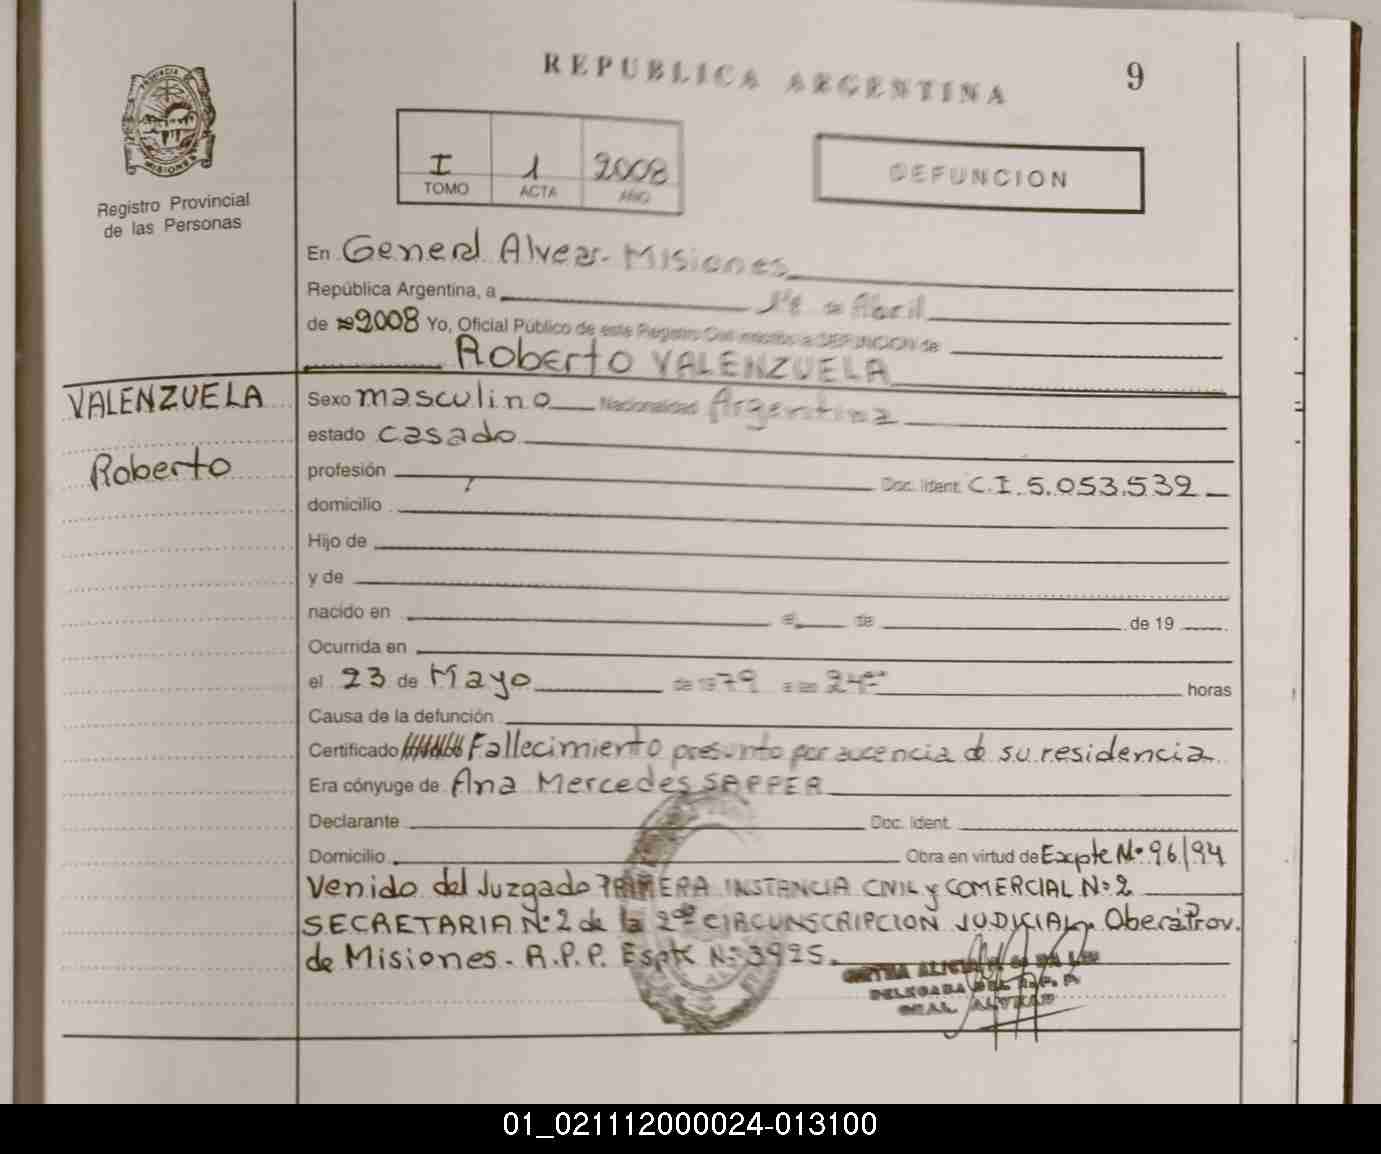 REPUBLICA ARGENTINA
9
PROVINCIA DE
MISIONES
Registro Provincial
de las Personas
I 1 2008
TOMO ACTA AÑO
DEFUNCION
En General Alvear - Misiones
República Argentina, a 1º de Abril
de 2008 Yo, Oficial Público de este Registro Civil inscribo la DEFUNCION de
Roberto VALENZUELA
VALENZUELA
Roberto
Sexo masculino Nacionalidad Argentina
estado casado
profesión Doc. Ident. C.I. 5.053.532
domicilio
Hijo de
y de
nacido en el de de 19
Ocurrida en
el 23 de Mayo de 1979 a las 24 horas
Causa de la defunción
Certificado Fallecimiento presunto por aucencia de su residencia
Era cónyuge de Ana Mercedes SAPPER
Declarante Doc. Ident.
Domicilio Obra en virtud de Expte Nº 96/94
Venido del Juzgado PRIMERA INSTANCIA CIVIL y COMERCIAL Nº 2
SECRETARIA Nº 2 de la 2da CIRCUNSCRIPCION JUDICIAL, Oberá Prov.
de Misiones - R.P.P. Expte Nº 3925.
DELEGADA DEL R.P.P.
GRAL. ALVEAR
01_021112000024-013100